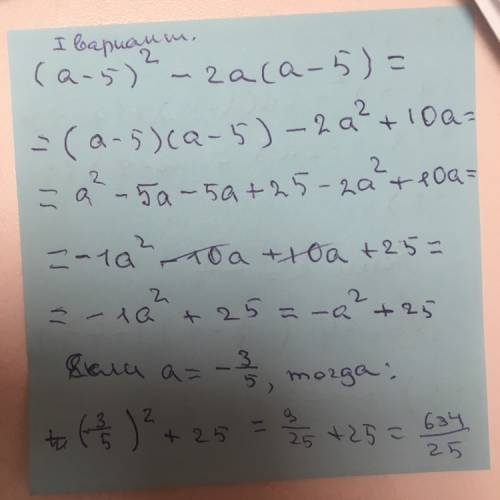 I вариант.
(a-5)² - 2a(a-5) =
= (a-5)(a-5) - 2a² + 10a =
= a² - 5a - 5a + 25 - 2a² + 10a =
= -1a² - 10a + 10a + 25 =
= -1a² + 25 = -a² + 25
Если a = -3/5, тогда:
(-3/5)² + 25 = 9/25 + 25 = 634/25